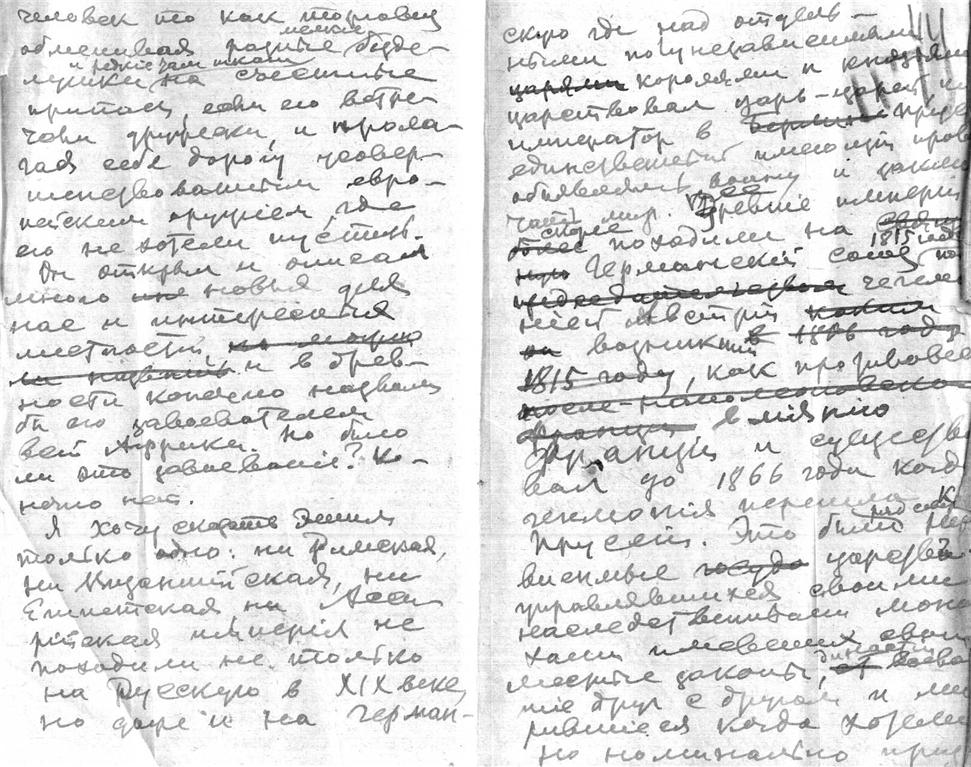 человек то как торговец
мелкие
обменивая разные безде-
и редкие там ткани
лушки на съестные
припасы, если его встре-
чали дружески, и прола-
гая себе дорогу усовер-
шенствованным евро-
пейским оружіем, где
его не хотели пустить.
Он открыл и описал
много новых для
нас и интересных
местностей, и в древ-
ности конечно назвали
бы его завоевателем
всей Африки. Но было
ли это завоеваніе? Ко-
нечно нет.
Я хочу сказать этим
только одно: ни Римская,
ни Византийская, ни
Египетская ни Асси-
рійская имперія не
походили не только
на Русскую в XIX веке,
но даже и на Герман-
скую где над отдель-
ными полунезависимыми
царями королями и князьями
царствовал царь-царей или
император в
единственный имеющій право
объявлять войну и заклю
чать мир. Все древніе имперіи
скорее
более походили на
1815 года
Германскій союз под
гегемо
ніей Австріи
возникшій в 1806 году
1815 году, как противовес
после-наполеоновской
Франціи
Франціи и существо
вал до 1866 года когда
гегемонія перешла к
Пруссіи. Это были
висимые царства
управлявшіеся своими
наследственными монар
хами имевшими свои
династіи
местные законы,
шіе друг с другом и ми
рившіеся когда хотели
но номинально приз